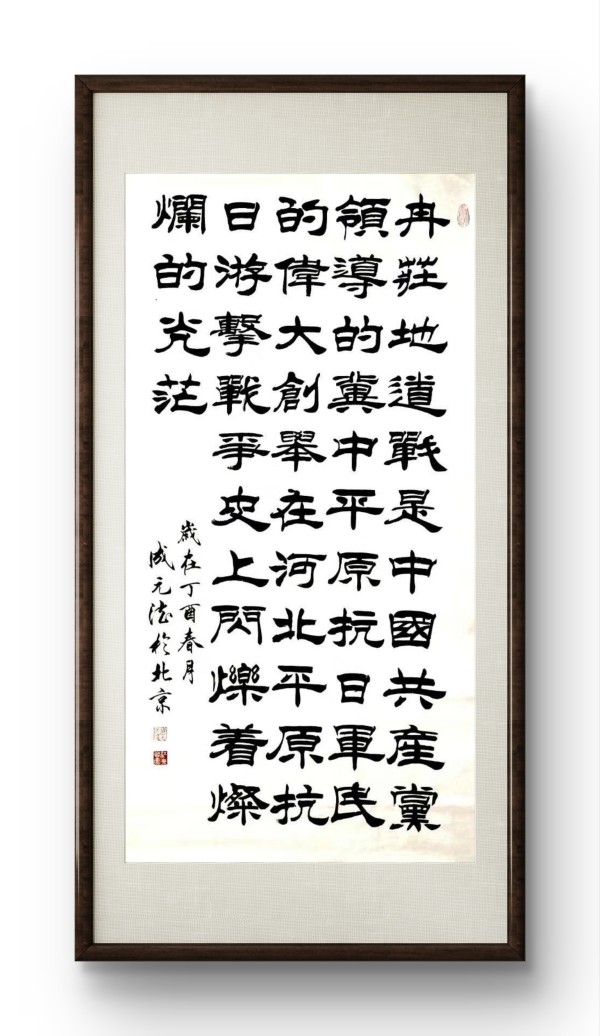 冉莊地道戰是中國共産黨
領導的冀中平原抗日軍民
的偉大創舉在河北平原抗
日游擊戰爭史上閃爍着燦
爛的光茫
歲在丁酉春月
成元於北京